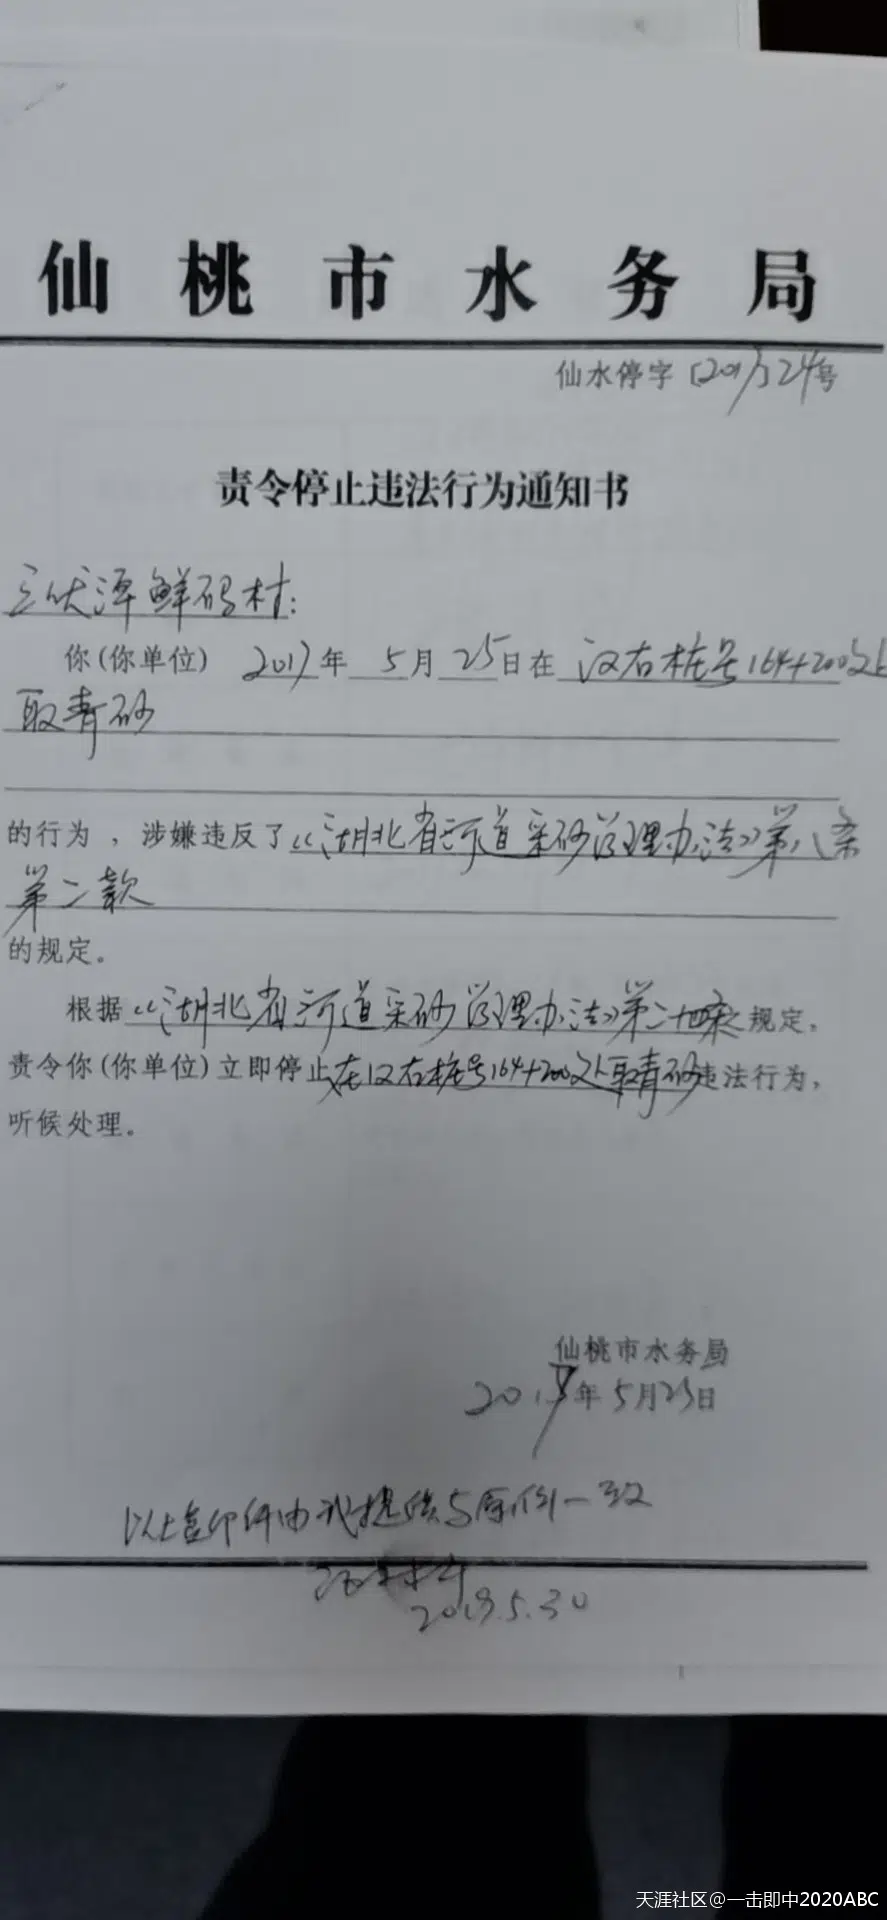 仙桃市水务局
仙水停字〔2017〕24号
责令停止违法行为通知书
三伏潭鲜码村：
你(你单位) 2017年 5月 25日在 汉右桩号164+200处
取青砂
的行为，涉嫌违反了《湖北省河道采砂管理办法》第八条
第二款
的规定。
根据《湖北省河道采砂管理办法》第二十四条之规定，
责令你(你单位)立即停止在汉右桩号164+200处取青砂违法行为，
听候处理。
仙桃市水务局
年5月25日
以上复印件由我提供与原件一致
2019.5.30
天涯社区@一击即中2020ABC